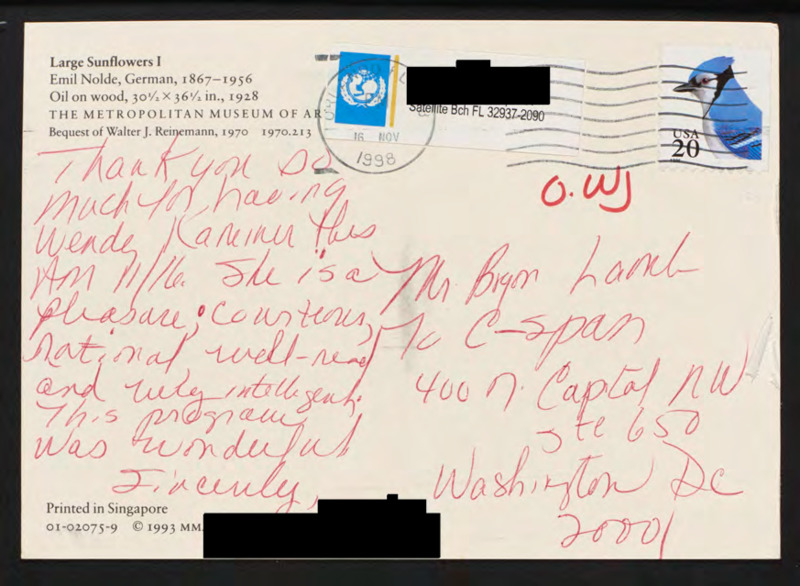 Large Sunflowers I
Emil Nolde, German, 1867–1956
Oil on wood, 30½ × 36½ in., 1928
THE METROPOLITAN MUSEUM OF AR
Bequest of Walter J. Reinemann, 1970 1970.213
16 NOV
1998
Satellite Bch FL 32937-2090
USA
20
O.WJ
Thank you so
much for having
Wendy Kaminer this
AM 11/16. She is a
pleasure; courteous,
rational, well-read
and very intelligent.
This program
was wonderful
Sincerely,
Mr Brian Lamb
% C-span
400 N. Capital NW
Ste 650
Washington Dc
20001
Printed in Singapore
01-02075-9 © 1993 MM